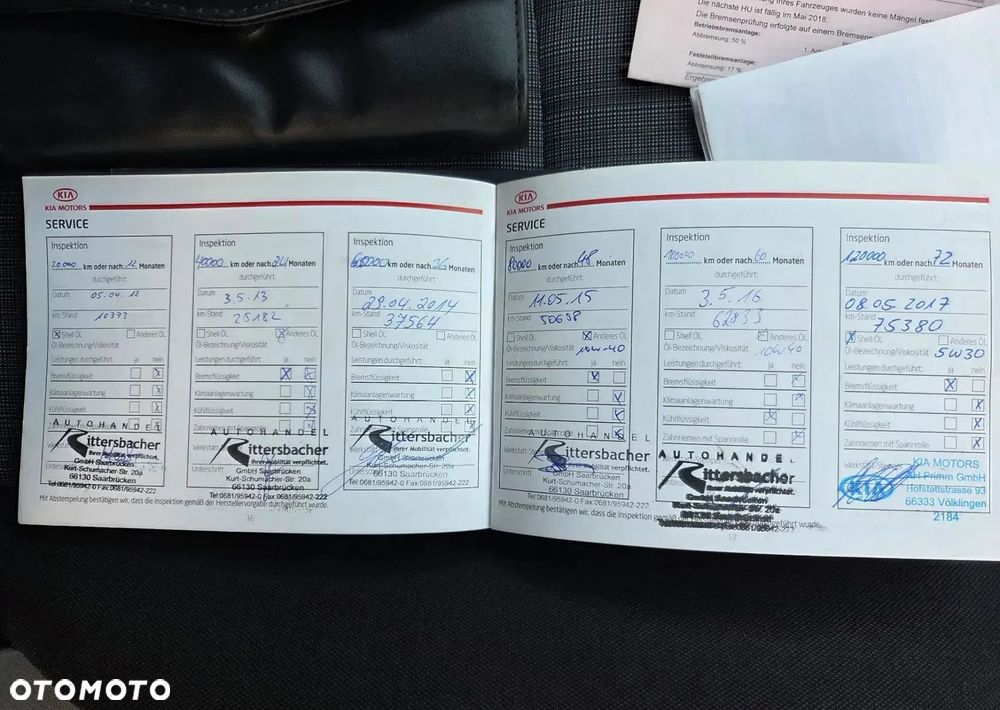 Ihres Fahrzeuges wurden keine Mängel fest
Die nächste HU ist fällig im Mai 2018.
Die Bremsenprüfung erfolgte auf einem Bremsen
Betriebsbremsanlage:
Abbremsung: 50 %
Feststellbremsanlage:
Abbremsung: 17 %
KIA
KIA MOTORS
SERVICE
Inspektion
20000 km oder nach 12 Monaten
durchgeführt:
Datum
05.04.12
km-Stand
10373
Shell ÖL Anderes ÖL
Öl-Bezeichnung/Viskosität
Leistungen durchgeführt: ja nein
Bremsflüssigkeit
Klimaanlagenwartung
Kühlflüssigkeit
AUTOHANDEL
Rittersbacher
Ihrer Mobilität verpflichtet.
GmbH Saarbrücken
Kurt-Schumacher-Str. 20a
66130 Saarbrücken
Tel:0681/95942-0 Fax:0681/95942-222
Inspektion
40000 km oder nach 24 Monaten
durchgeführt:
Datum
3.5.13
km-Stand
25182
Shell ÖL Anderes ÖL
Öl-Bezeichnung/Viskosität
Leistungen durchgeführt: ja nein
Bremsflüssigkeit
Klimaanlagenwartung
Kühlflüssigkeit
AUTOHANDEL
Rittersbacher
Ihrer Mobilität verpflichtet.
Unterschrift
GmbH Saarbrücken
Kurt-Schumacher-Str. 20a
66130 Saarbrücken
Tel:0681/95942-0 Fax:0681/95942-222
Inspektion
60000 km oder nach 36 Monaten
durchgeführt:
Datum
29.04.2014
km-Stand
37564
Shell ÖL Anderes ÖL
Öl-Bezeichnung/Viskosität
Leistungen durchgeführt: ja nein
Bremsflüssigkeit
Klimaanlagenwartung
Kühlflüssigkeit
AUTOHANDEL
Rittersbacher
Ihrer Mobilität verpflichtet.
GmbH Saarbrücken
Kurt-Schumacher-Str. 20a
66130 Saarbrücken
Tel:0681/95942-0 Fax:0681/95942-222
Mit Abstempelung bestätigen wir, dass die Inspektion gemäß der Herstellervorgabe durchgeführt wurde.
16
KIA
KIA MOTORS
SERVICE
Inspektion
80000 km oder nach 48 Monaten
durchgeführt:
Datum
11.05.15
km-Stand
50638
Shell ÖL Anderes ÖL
Öl-Bezeichnung/Viskosität 10W-40
Leistungen durchgeführt: ja nein
Bremsflüssigkeit
Klimaanlagenwartung
Kühlflüssigkeit
Zahnriemen mit Spannrolle
AUTOHANDEL
Rittersbacher
Ihrer Mobilität verpflichtet.
Unterschrift
GmbH Saarbrücken
Kurt-Schumacher-Str. 20a
66130 Saarbrücken
Tel:0681/95942-0 Fax:0681/95942-222
Inspektion
100000 km oder nach 60 Monaten
durchgeführt:
Datum
3.5.16
km-Stand
62833
Shell ÖL Anderes ÖL
Öl-Bezeichnung/Viskosität 10W40
Leistungen durchgeführt: ja nein
Bremsflüssigkeit
Klimaanlagenwartung
Kühlflüssigkeit
Zahnriemen mit Spannrolle
AUTOHANDE
Rittersbacher
Inspektion
120000 km oder nach 72 Monaten
durchgeführt:
Datum
08.05.2017
km-Stand
75380
Shell ÖL Anderes ÖL
Öl-Bezeichnung/Viskosität 5W30
Leistungen durchgeführt: ja nein
Bremsflüssigkeit
Klimaanlagenwartung
Kühlflüssigkeit
Zahnriemen mit Spannrolle
KIA MOTORS
Primm GmbH
KIA
Hofstattstrasse 93
66333 Völklingen
2184
Mit Abstempelung bestätigen wir, dass die Inspektion gemäß
durchgeführt wurde.
17
OTOMOTO